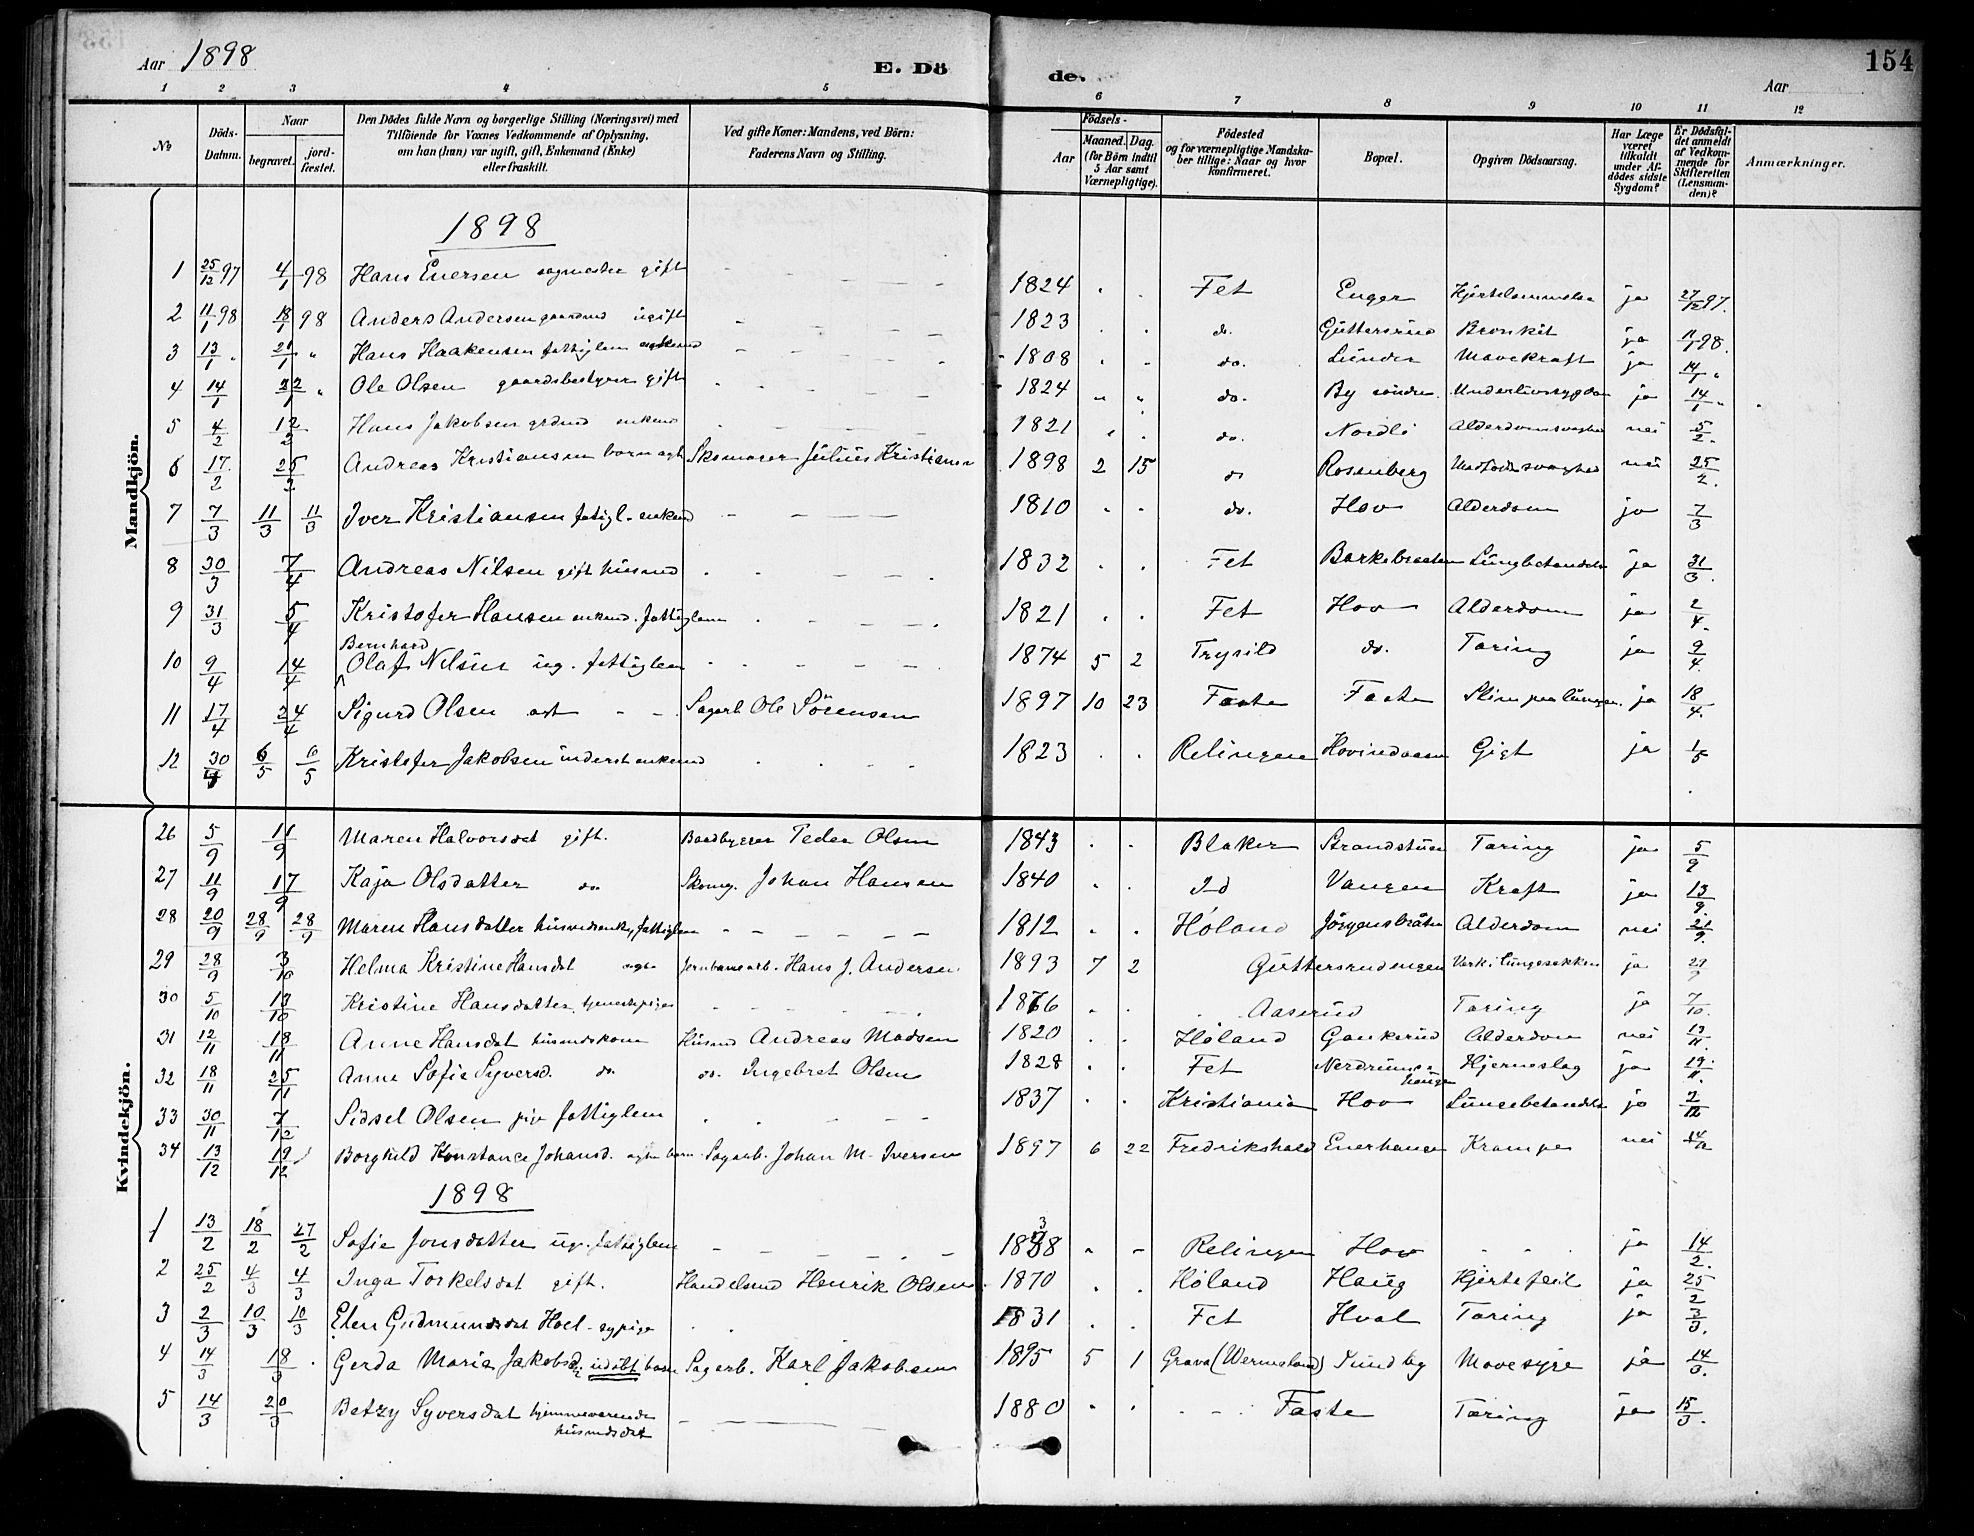 Aar 1898 E. Döde. Aar 154
1 2 3 4 5 6 7 8 9 10 11 12
№
Döds-Datum.
Naar
begravet. jordfæstet.
Den Dödes fulde Navn og borgerlige Stilling (Næringsvei) med Tilföiende for Voxnes Vedkommende af Oplysning, om han (hun) var ugift, gift, Enkemand (Enke) eller fraskilt.
Ved gifte Koner: Mandens, ved Börn: Faderens Navn og Stilling.
Födsels-
Aar Maaned. Dag.
(for Börn indtil 5 Aar samt Værnepligtige).
Födested og for værnepligtige Mandskaber tillige: Naar og hvor konfirmeret.
Bopæl.
Opgiven Dödsaarsag.
Har Læge været tilkaldt under Afdödes sidste Sygdom?
Er Dödsfaldet anmeldt af Vedkommende for Skifteretten (Lensmanden)?
Anmærkninger.
Mandkjön.
1898
1 25/12 97 4/1 98 Hans Enersen sagmester gift 1824 Fet Enger ja 27/12 97.
2 11/1 98 18/1 98 Anders Andersen gaardmd ugift 1823 do. Guttersrud Bronkit ja 11/1 98.
3 13/1 " 21/1 " Hans Haakensen fattiglem enkemd 1808 do. Lunder Mavekræft ja 14/1 "
4 14/1 22/1 " Ole Olsen gaardsbestyrer gift 1824 do. By söndre Underlivssygdom ja 14/1 "
5 4/2 12/2 Hans Jakobsen grdmd enkemd 1821 do. Nordli Alderdomssvaghed nei 5/2.
6 17/2 25/2 Andreas Kristiansen barn ægte Skomager Julius Kristiansen 1898 2 15 do Rosenberg Medfödt svaghed nei 25/2.
7 7/3 11/3 11/3 Iver Kristiansen fatigl. enkemd 1810 do. Hov Alderdom ja 7/3
8 30/3 7/4 Andreas Nilsen gift husmd 1832 Fet Barkebraaten Lungbetændelse ja 31/3.
9 31/3 5/4 Kristofer Hansen enkemd. fattiglem 1821 Fet Hov Alderdom ja 2/4.
10 9/4 14/4 Bernhard Olaf Nilsen ug. fattiglem 1874 5 2 Trysild do. Tæring ja 9/4.
11 17/4 24/4 Sigurd Olsen ægt Sagarb Ole Sörensen 1897 10 23 Faste Faste Slim paa lungen. ja 18/4.
12 30/4 6/5 6/5 Kristofer Jakobsen inderst enkemd 1823 Relingen Hovindaasen Gigt ja 1/5
Kvindekjön.
26 5/9 11/9 Maren Halvorsdat gift. Baadbygger Peder Olsen 1843 Blaker Strandstuen Tæring ja 5/9
27 11/9 17/9 Kaja Olsdatter do Skomg. Johan Hansen 1840 Id Vangen Kræft ja 13/9.
28 20/9 28/9 28/9 Maren Hansdatter husmdsenke, fattiglem 1812 Höland Jörgensbråten Alderdom nei 21/9.
29 28/9 3/10 Helma Kristine Hansdat ægte Jernbanearb. Hans J. Andersen 1893 7 2 Guttersrudengen Værk i lungesækken ja 29/9
30 5/10 13/10 Kristine Hansdatter, tjenestepige 1876 Aaserud Tæring ja 7/10.
31 12/11 18/11 Anne Hansdat husmdskone Husmd Andreas Madsen 1820 Höland Gankerud Alderdom nei 13/11.
32 18/11 25/11 Anne Sofie Syversd. do. do. Ingebret Olsen 1828 Fet Nerdrumshaugen Hjerneslag ja 19/11.
33 30/11 7/12 Sidsel Olsen piv fattiglem 1837 Kristiania Hov Lungebetændelse ja 2/12
34 13/12 19/12 Borghild Konstance Johansd. ægte barn Sagarb. Johan M. Iversen 1897 6 22 Fredrikshald Enerhaugen Krampe nei 14/12
1898
1 13/2 18/2 27/2 Sofie Jonsdatter ug. fattiglem 1838 Relingen Hov ja 14/2.
2 25/2 4/3 4/3 Inga Torkelsdat gift. Handelsmd Henrik Olsen 1870 Höland Haug Hjertefeil ja 25/2
3 2/3 10/3 10/3 Elen Gudmundsdat Hoel - sypige 1831 Fet Hval Tæring ja 3/3.
4 14/3 18/3. Gerda Maria Jakobsd. udöbt barn Sagarb. Karl Jakobsen 1895 5 1 Grava (Wermeland) Sundby Mavesyre ja 14/3.
5 14/3 20/3 Betzy Syversdat hjemmeværende husmdsdat 1880 Faste Tæring ja 15/3.